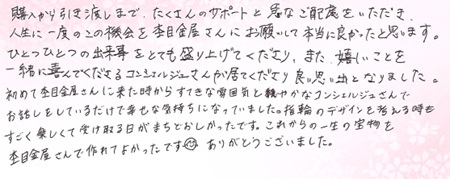 購入から引き渡しまで、たくさんのサポートと急なご配慮をいただき、
人生に一度のこの機会を杢目金屋さんにお願いして本当に良かったと思います。
ひとつひとつの出来事をとても盛り上げてくださり、また、嬉しいことを
一緒に喜んでくださるコンシェルジュさんが居てくださり良い思い出となりました。
初めて杢目金屋さんに来た時からすてきな雰囲気と穏やかなコンシェルジュさんで
お話しをしているだけで幸せな気持ちになっていました。指輪のデザインを考える時も
すごく楽しくて受け取る日がまちどおしかったです。これからの一生の宝物を
杢目金屋さんで作れてよかったです😊 ありがとうございました。